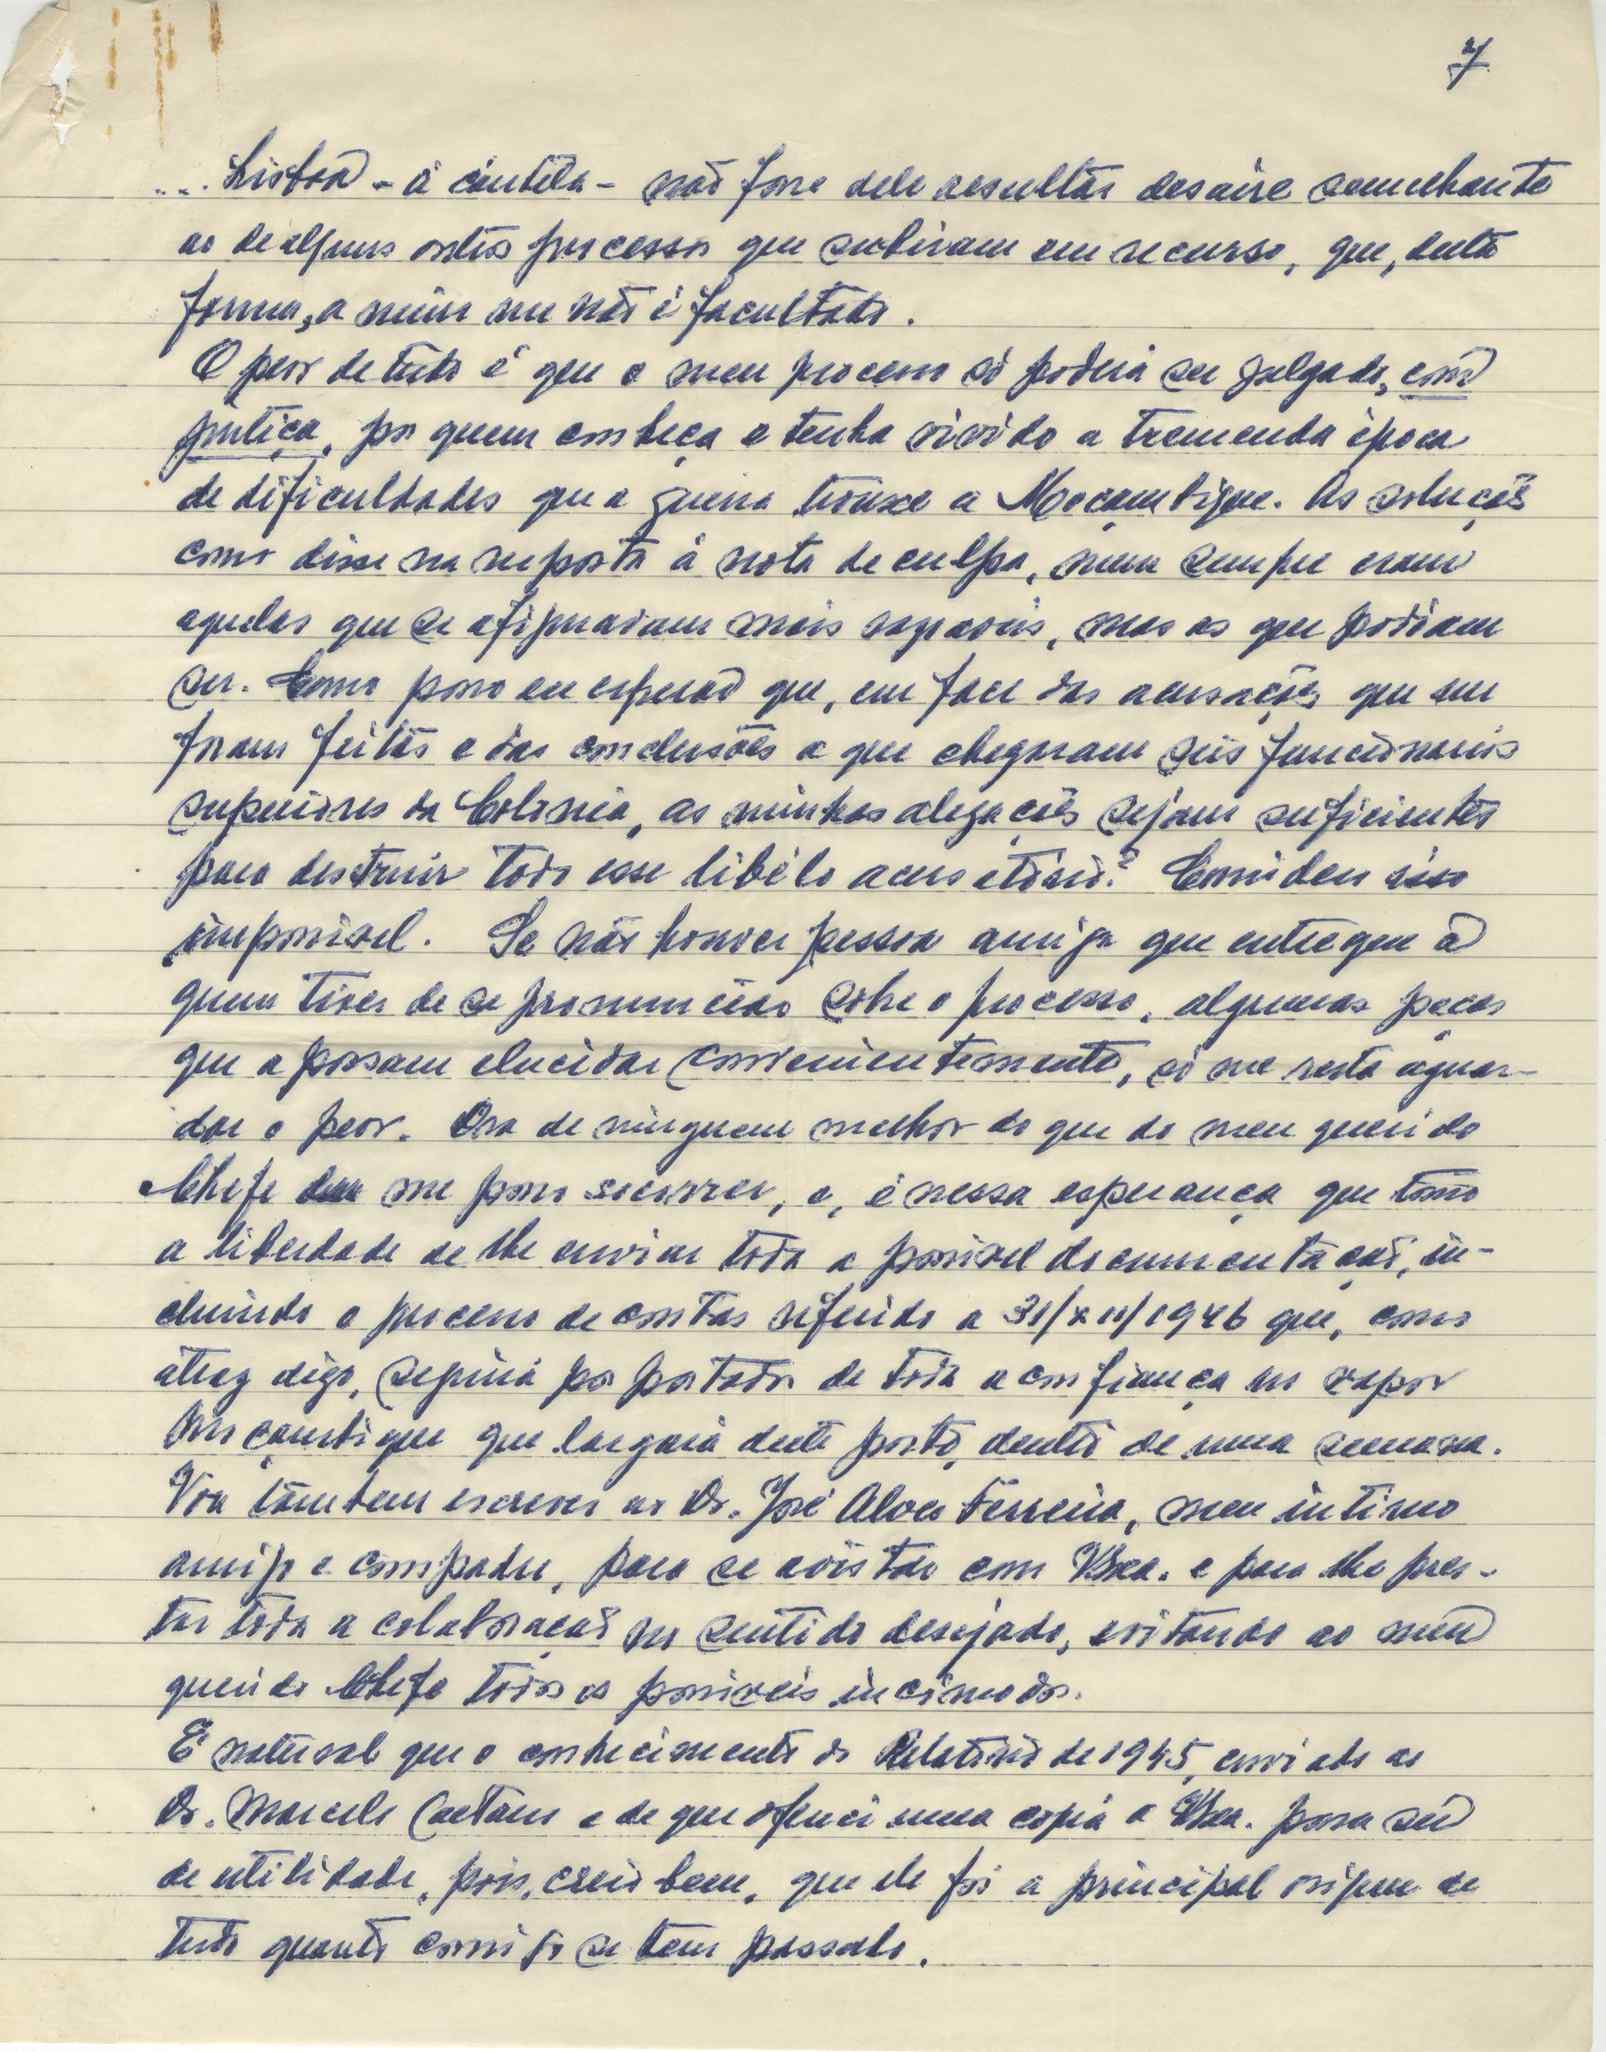 7
... Lisboa - á cáutela - não fosse dele resultár desaire semelhante
ao de alguns outros processos que subiram em recurso, que, desta
forma, a mim me não é facultado.
O peor de tudo é que o meu processo só poderá ser julgado, com
justiça, por quem conheça e tenha vivido a tremenda época
de dificuldades que a guerra trouxe a Moçambique. As soluções
como disse na resposta á nota de culpa, nem sempre eram
aquelas que se afiguravam mais rasoaveis, mas as que podiam
ser. Como posso eu esperar que, em face das acusações que me
foram feitas e das conclusões a que chegaram seis funcionarios
superiores da Colonia, as minhas alegações sejam suficientes
para destruir todo esse libélo acusatório? Considero isso
impossivel. Se não houver pessoa amiga que entregue á
quem tiver de se pronunciar sobre o processo, algumas peças
que a possam elucidar convenientemente, só me resta aguar-
dar o peor. Ora de ninguem melhor do que do meu querido
Chefe me posso socorrer, e, é nessa esperança que tomo
a liberdade de lhe enviar toda a possivel documentação, in-
cluindo o processo de contas referido a 31/XII/1946 que, como
atraz digo, seguirá por portador de toda a confiança no vapor
Moçambique que largará deste porto, dentro de uma semana.
Vou tambem escrever ao Dr. José Alves Ferreira, meu intimo
amigo e compadre, para se avistar com VExa. e para lhe pres-
tar toda a colaboração no sentido desejado, evitando ao meu
querido Chefe todos os possiveis incómodos.
É natural que o conhecimento do Relatório de 1945, enviado ao
Dr. Marcelo Caetano e de que ofereci uma copia a VExa. possa ser
de utilidade, pois, creio bem, que ele foi a principal origem de
tudo quanto comigo se tem passado.